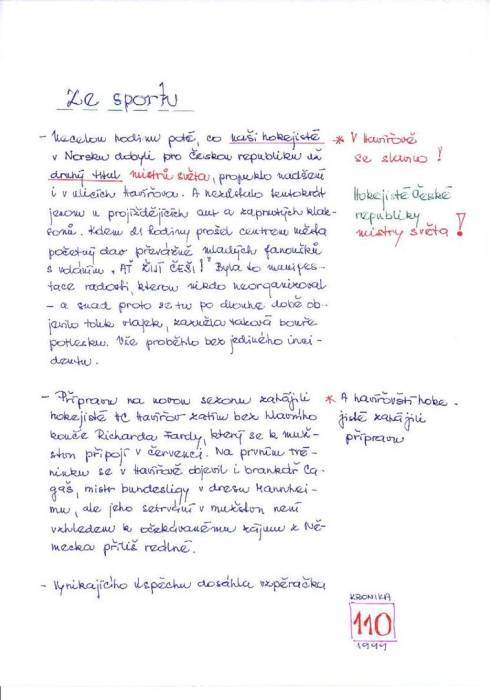 Ze sportu
- Necelou hodinu poté, co naši hokejisté
v Norsku dobyli pro Českou republiku už
druhý titul mistrů světa, propuklo nadšení
i v ulicích Havířova. A nezůstalo tentokrát
jenom u projíždějících aut a zapnutých klak-
sonů. Kolem 21 hodiny prošel centrem města
početný dav převážně mladých fanoušků
s voláním „AŤ ŽIJÍ ČEŠI!“ Byla to manifes-
tace radosti, kterou nikdo neorganizoval
- a snad proto se tu po dlouhé době ob-
jevilo tolik vlajek, zazněla taková bouře
potlesku. Vše proběhlo bez jediného inci-
dentu.
* V Havířově
se slavilo!
Hokejisté České
republiky
mistry světa!
- Přípravu na novou sezonu zahájili
hokejisté HC Havířov zatím bez hlavního
kouče Richarda Fardy, který se k muž-
stvu připojí v červenci. Na prvním tré-
ninku se v Havířově objevil i brankář Ca-
gaš, mistr bundesligy v dresu Mannhei-
mu, ale jeho setrvání v mužstvu není
vzhledem k očekávanému zájmu z Ně-
mecka příliš reálné.
* A havířovští hoke-
jisté zahájili
přípravu
- Vynikajícího úspěchu dosáhla vzpěračka
KRONIKA
110
1999